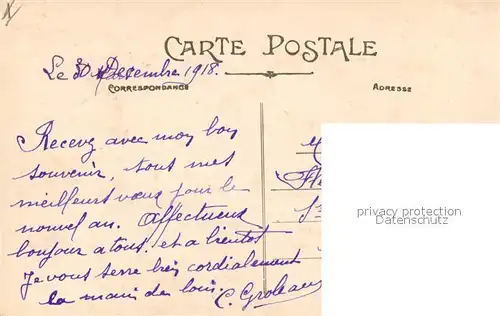 CARTE POSTALE
Le 30 Decembre 1918.
CORRESPONDANCE
ADRESSE
Recevez avec mon bon
souvenir, tous mes
meilleurs vœux pour le
nouvel an. Affectueux
bonjour a tous. et a bientot
Je vous serre bien cordialement
la main de loin. C. Groleau
privacy protection
Datenschutz